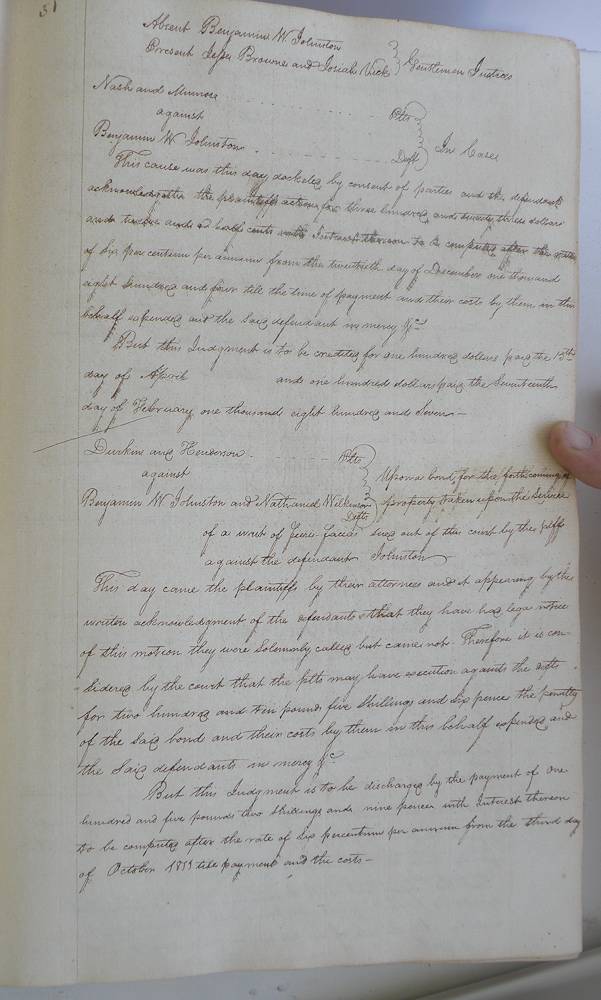 51
Absent Benjamin W Johnston
Present Jesse Browne and Josiah Vick } Gentlemen Justices
Nash and Munroe Plts
against
Benjamin W Johnston Deft } In Case
This cause was this day docketed by consent of parties and the defendant
acknowledgeth the plaintiffs action for three hundred and seventy three dollars
and twelve and a half cents with Interest thereon to be computed after the rate
of six per centum per annum from the twentieth day of December one thousand
eight hundred and four till the time of payment and their costs by them in this
behalf expended and the said defendant in mercy &c
But this Judgment is to be credited for one hundred dollars paid the 15th
day of April and one hundred dollars paid the Seventeenth
day of February one thousand eight hundred and Seven —
Durkin and Henderson Plts
against
Benjamin W Johnston and Nathaniel Wilkinson Defts
} Upon a bond for the forthcoming of
property taken upon the service
of a writ of fieri facias sued out of this court by the plffs
against the defendant Johnston
This day came the plaintiffs by their attorney and it appearing by the
written acknowledgment of the defendants that they have had legal notice
of this motion they were Solemnly called but came not. Therefore it is con-
-sidered by the court that the plts may have execution against the defts
for two hundred and ten pounds five Shillings and six pence the penalty
of the said bond and their costs by them in this behalf expended and
the said defendants in mercy &c
But this Judgment is to be discharged by the payment of one
hundred and five pounds two Shillings and nine pence with Interest thereon
to be computed after the rate of six percentum per annum from the third day
of October 1811 till payment and the costs —